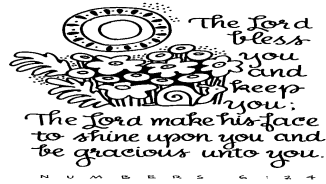 The Lord
bless
you
and
keep
you:
The Lord make his face
to shine upon you and
be gracious unto you.
NUMBERS 6:24